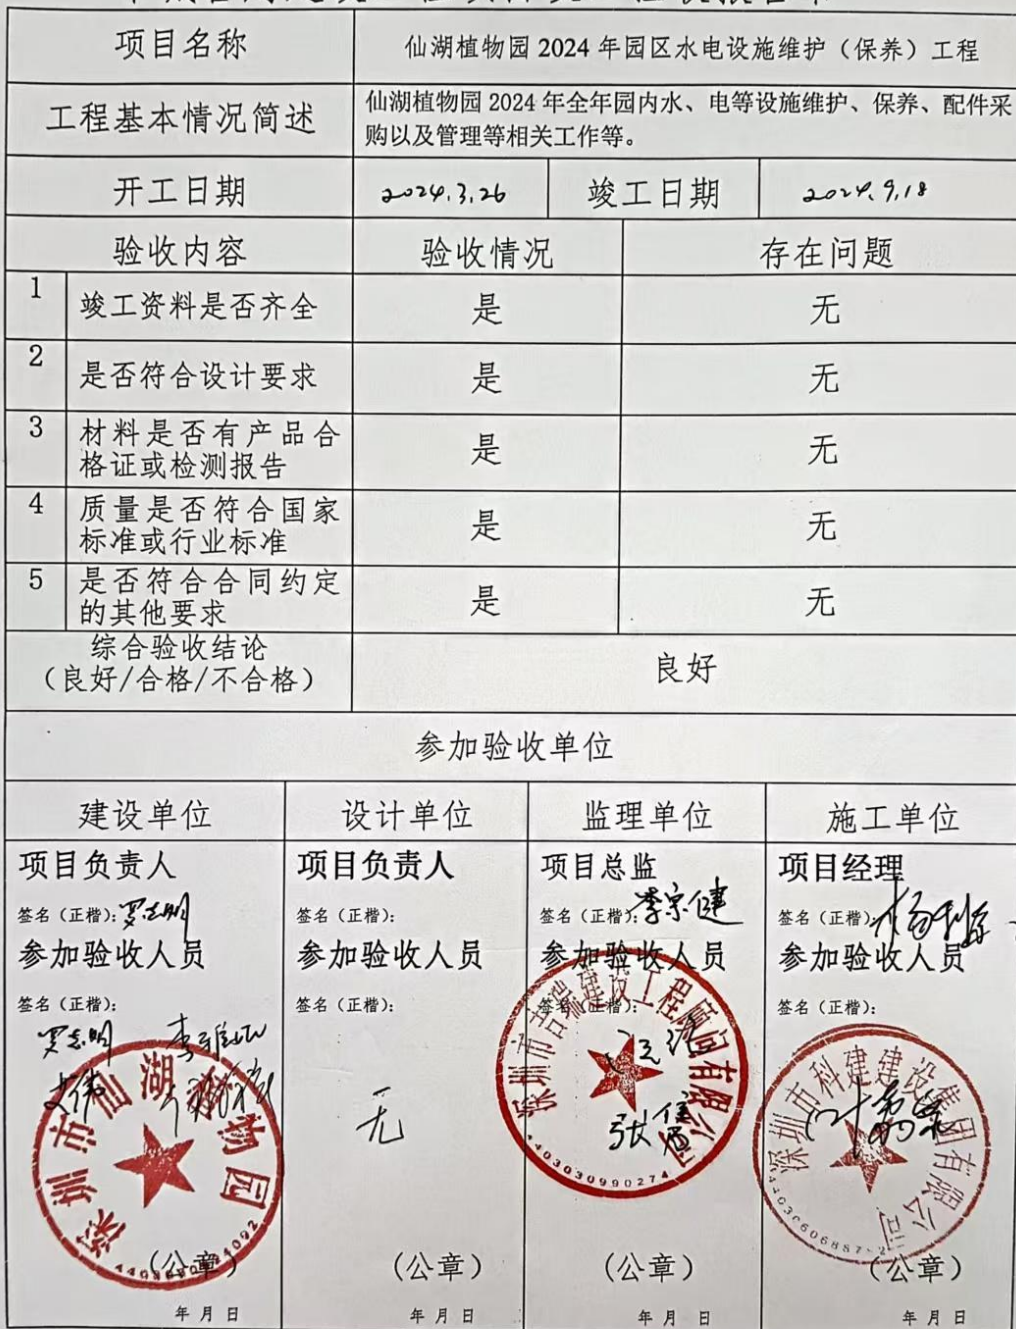 项目名称
仙湖植物园2024年园区水电设施维护（保养）工程
工程基本情况简述
仙湖植物园2024年全年园内水、电等设施维护、保养、配件采
购以及管理等相关工作等。
开工日期
2024.3.26
竣工日期
2024.9.18
验收内容
验收情况
存在问题
1
竣工资料是否齐全
是
无
2
是否符合设计要求
是
无
3
材料是否有产品合
格证或检测报告
是
无
4
质量是否符合国家
标准或行业标准
是
无
5
是否符合合同约定
的其他要求
是
无
综合验收结论
（良好/合格/不合格）
良好
参加验收单位
建设单位
设计单位
监理单位
施工单位
项目负责人
签名（正楷）：罗志明
参加验收人员
签名（正楷）：
罗志明
深圳市仙湖植物园
（公章）
年月日
项目负责人
签名（正楷）：
参加验收人员
签名（正楷）：
无
（公章）
年月日
项目总监
签名（正楷）：李宗健
参加验收人员
签名（正楷）：
深圳市吉瑞建设工程顾问有限公司
4403030990274
（公章）
年月日
项目经理
签名（正楷）：
参加验收人员
签名（正楷）：
深圳市科建建设集团有限公司
（公章）
年月日